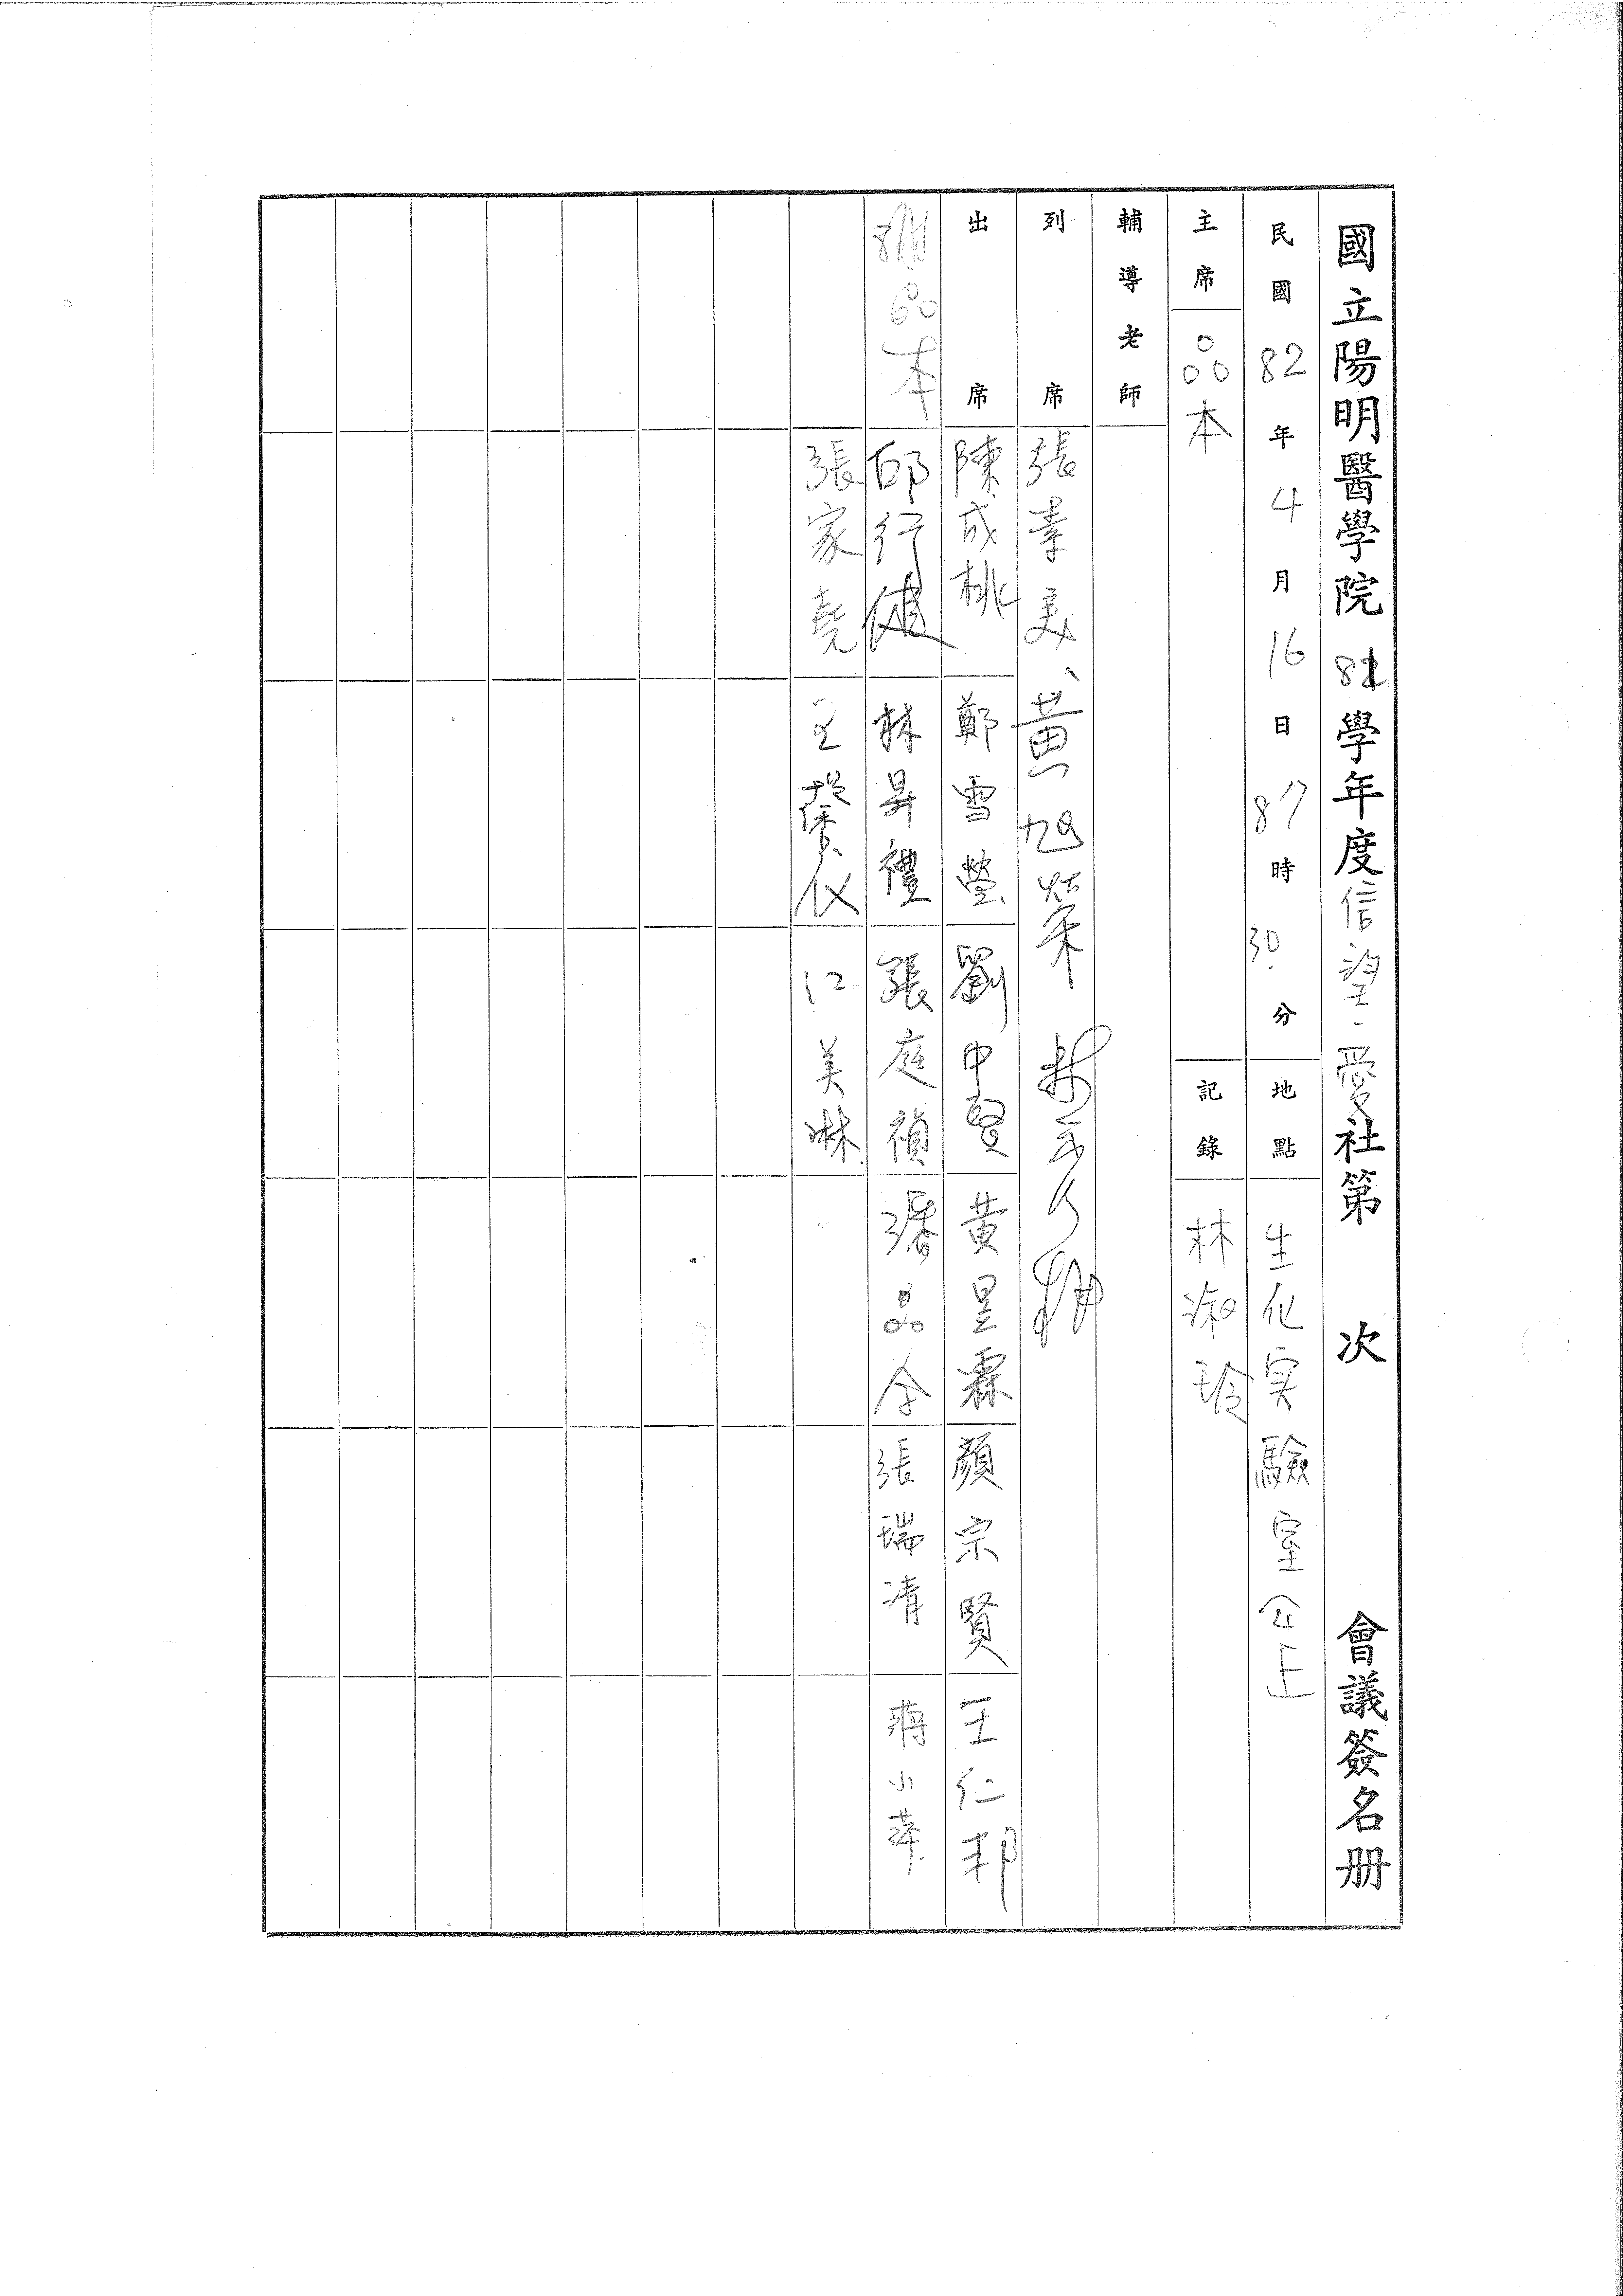 國立陽明醫學院82學年度信望愛社第 次 會議簽名册
民國82年4月16日 時30分 地點 生化实驗室
主席 品本 記錄 林淑玲
輔導老師
列席 張素美、黃旭榮
出席 陳成桃 鄭雪瑩 劉中賢 黃昱霖 顏宗賢 王仁邦
謝品本 邱行健 林昇禮 張庭禎 潘品令 張瑞清 蔣小萍
張家堯 王 仪 江美琳